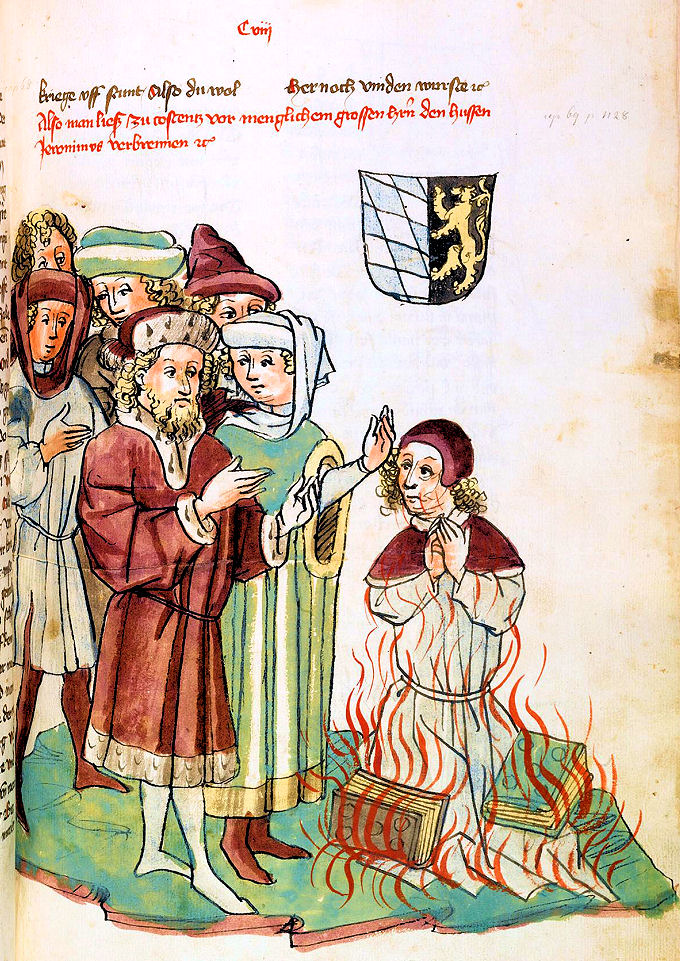 Cviij
kriege uff stunt Also du wol hernoch vinden wurste ꝛc
Also man ließ zu costentz vor menglichem grossen hrn̄ den hussen
Jeronimus verbrennen ꝛc